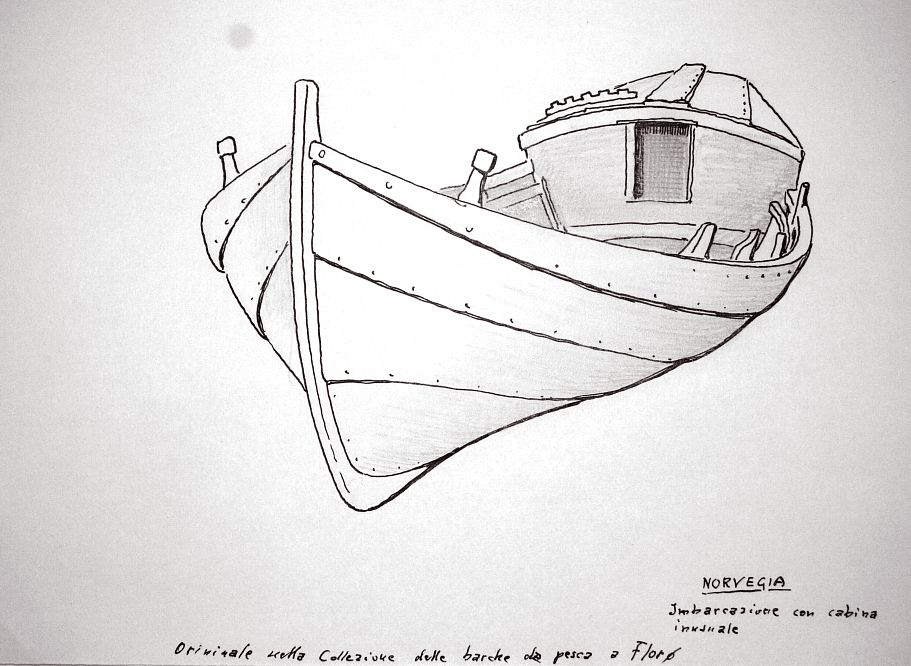 NORVEGIA
Imbarcazione con cabina
inusuale
Originale nella Collezione delle barche da pesca a Florø